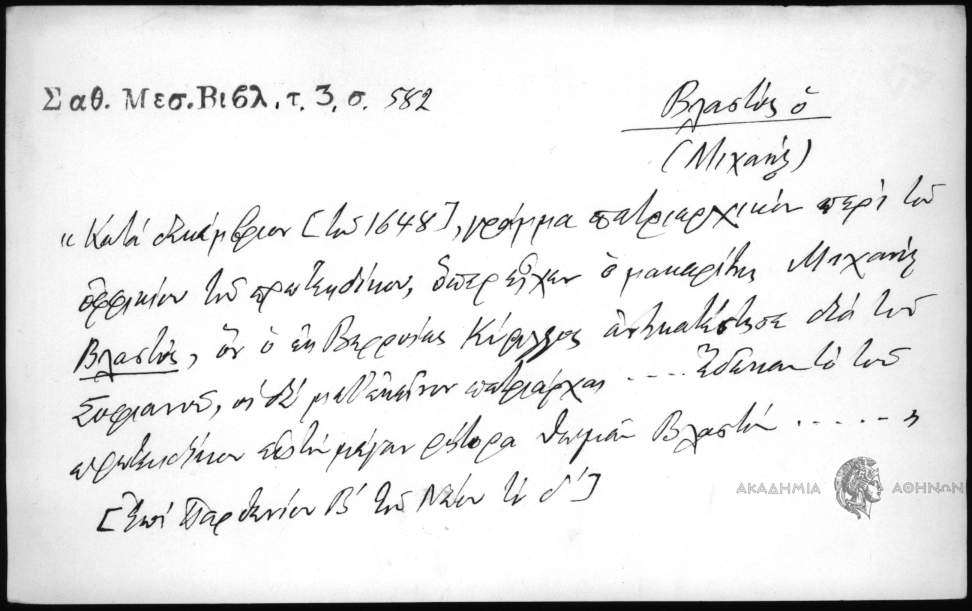 Σαθ. Μεσ. Βιβλ. τ. 3, σ. 582
Βλαστός ὁ
(Μιχαήλ)
"Κατά Δεκέμβριον [τοῦ 1648], γράμμα πατριαρχικόν περί τοῦ
ὀφφικίου τοῦ πρωτεκδίκου, ὅπερ εἶχεν ὁ μακαρίτης Μιχαήλ
Βλαστός, ὅν ὁ ἐκ Βερροίας Κύριλλος ἀντικατέστησε διά τοῦ
Σοφιανοῦ, οἱ δέ μετ' ἐκεῖνον πατριάρχαι ..... ἔδωκαν τό τοῦ
πρωτεκδίκου εἰς τόν μέγαν ρήτορα Θωμᾶν Βλαστόν ......"
[Ἐπί Παρθενίου Β΄ τοῦ Νέου τό δ΄]
ΑΚΑΔΗΜΙΑ ΑΘΗΝΩΝ